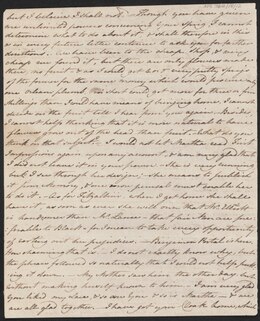 but I believe I shall not. — Though you have given
me unlimited powers concerning Your Sprig, I cannot
determine what to do about it, & shall therefore in this
& in every future letter continue to ask your further
directions. — We have been to the cheap Shop, & very
cheap we found it, but there are only flowers made
there, no fruit — & as I could get 4 or 5 very pretty sprigs
of the former for the same money which would procure
only one Orleans plumb, in short could get more for three or four
Shillings than I could have means of bringing home, I cannot
decide on the fruit till I hear from you again. — Besides,
I cannot help thinking that it is more natural to have
flowers grow out of the head than fruit. — What do you
think on that subject? — I would not let Martha read First
Impressions again upon any account, & am very glad that
I did not leave it in your power. — She is very cunning,
but I see through her design; — she means to publish
it from Memory, & one more perusal must enable her
to do it. — As for Fitzalbini, when I get home she shall
have it, as soon as ever she will own that Mr Elliott
is handsomer than Mr Lance — that fair Men are pre-
ferable to Black — for I mean to take every opportunity
of rooting out her prejudices. — Benjamin Portal is here.
How charming that is! — I do not exactly know why, but
the phrase followed so naturally that I could not help put-
ting it down. — My Mother saw him the other day, but
without making herself known to him. — I am very glad
You liked my Lace, & so are You & so is Martha — & we
are all glad together. — I have got your Cloak home, which